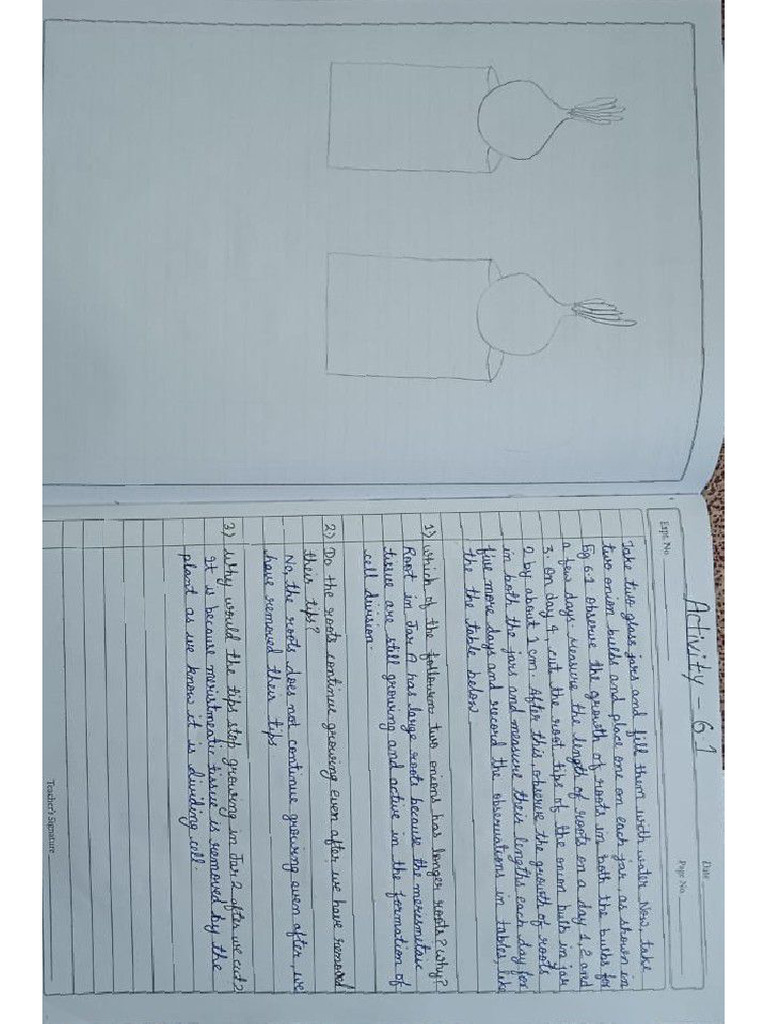 Activity - 6.1
Date
Expt. No.
Page No.
Take two glass jars and fill them with water. Now, take
two onion bulbs and place one on each jar, as shown in
Fig 6.1 observe the growth of roots in both the bulbs for
a few days. Measure the length of roots on a day 1, 2 and
3. On day 4, cut the root tips of the onion bulb in jar
2 by about 1 cm. After this, observe the growth of roots
in both the jars and measure their lengths each day for
five more days and record the observations in tables, like
the the table below
1) Which of the two onions has longer roots? Why?
Root in Jar A has large roots because the
tissue are still growing and active in the formation of
cell division.
2) Do the roots continue growing even after we have removed
their tips?
No, the roots does not continue growing even after, we
have removed their tips
3) Why would the tips stop growing in Jar 2 after we cut?
It is because tissue is removed by the
plant as we know it is dividing cell.
Teacher's Signature